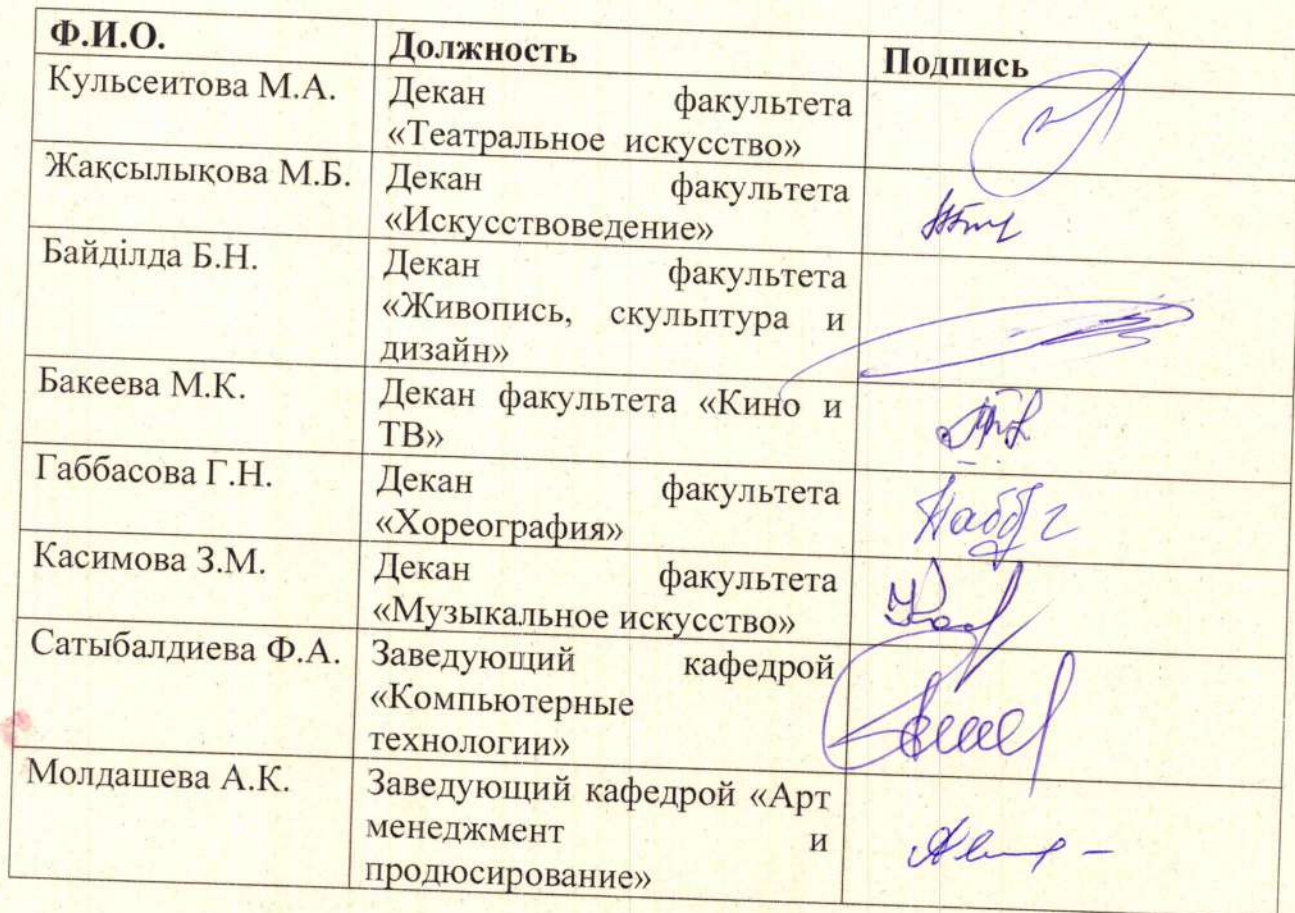 Ф.И.О. Должность Подпись
Кульсеитова М.А. Декан факультета
«Театральное искусство»
Жақсылықова М.Б. Декан факультета
«Искусствоведение»
Байділда Б.Н. Декан факультета
«Живопись, скульптура и
дизайн»
Бакеева М.К. Декан факультета «Кино и
ТВ»
Габбасова Г.Н. Декан факультета
«Хореография»
Касимова З.М. Декан факультета
«Музыкальное искусство»
Сатыбалдиева Ф.А. Заведующий кафедрой
«Компьютерные
технологии»
Молдашева А.К. Заведующий кафедрой «Арт
менеджмент и
продюсирование»